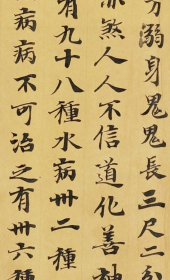 方溺身鬼鬼長三尺二分
亦煞人人不信道化善神
有九十八種水病卅二種
病病不可治之有卅六種